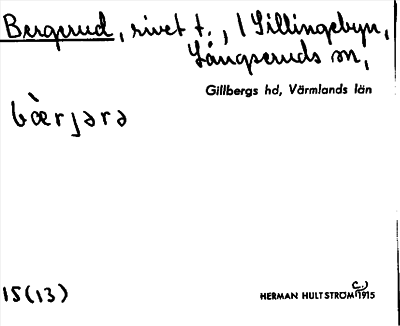 Bergerud, rivet t., / Sillingebyn,
Långseruds sn,
Gillbergs hd, Värmlands län
bὲrjərə
15(13)
HERMAN HULTSTRÖM (C.) 1915